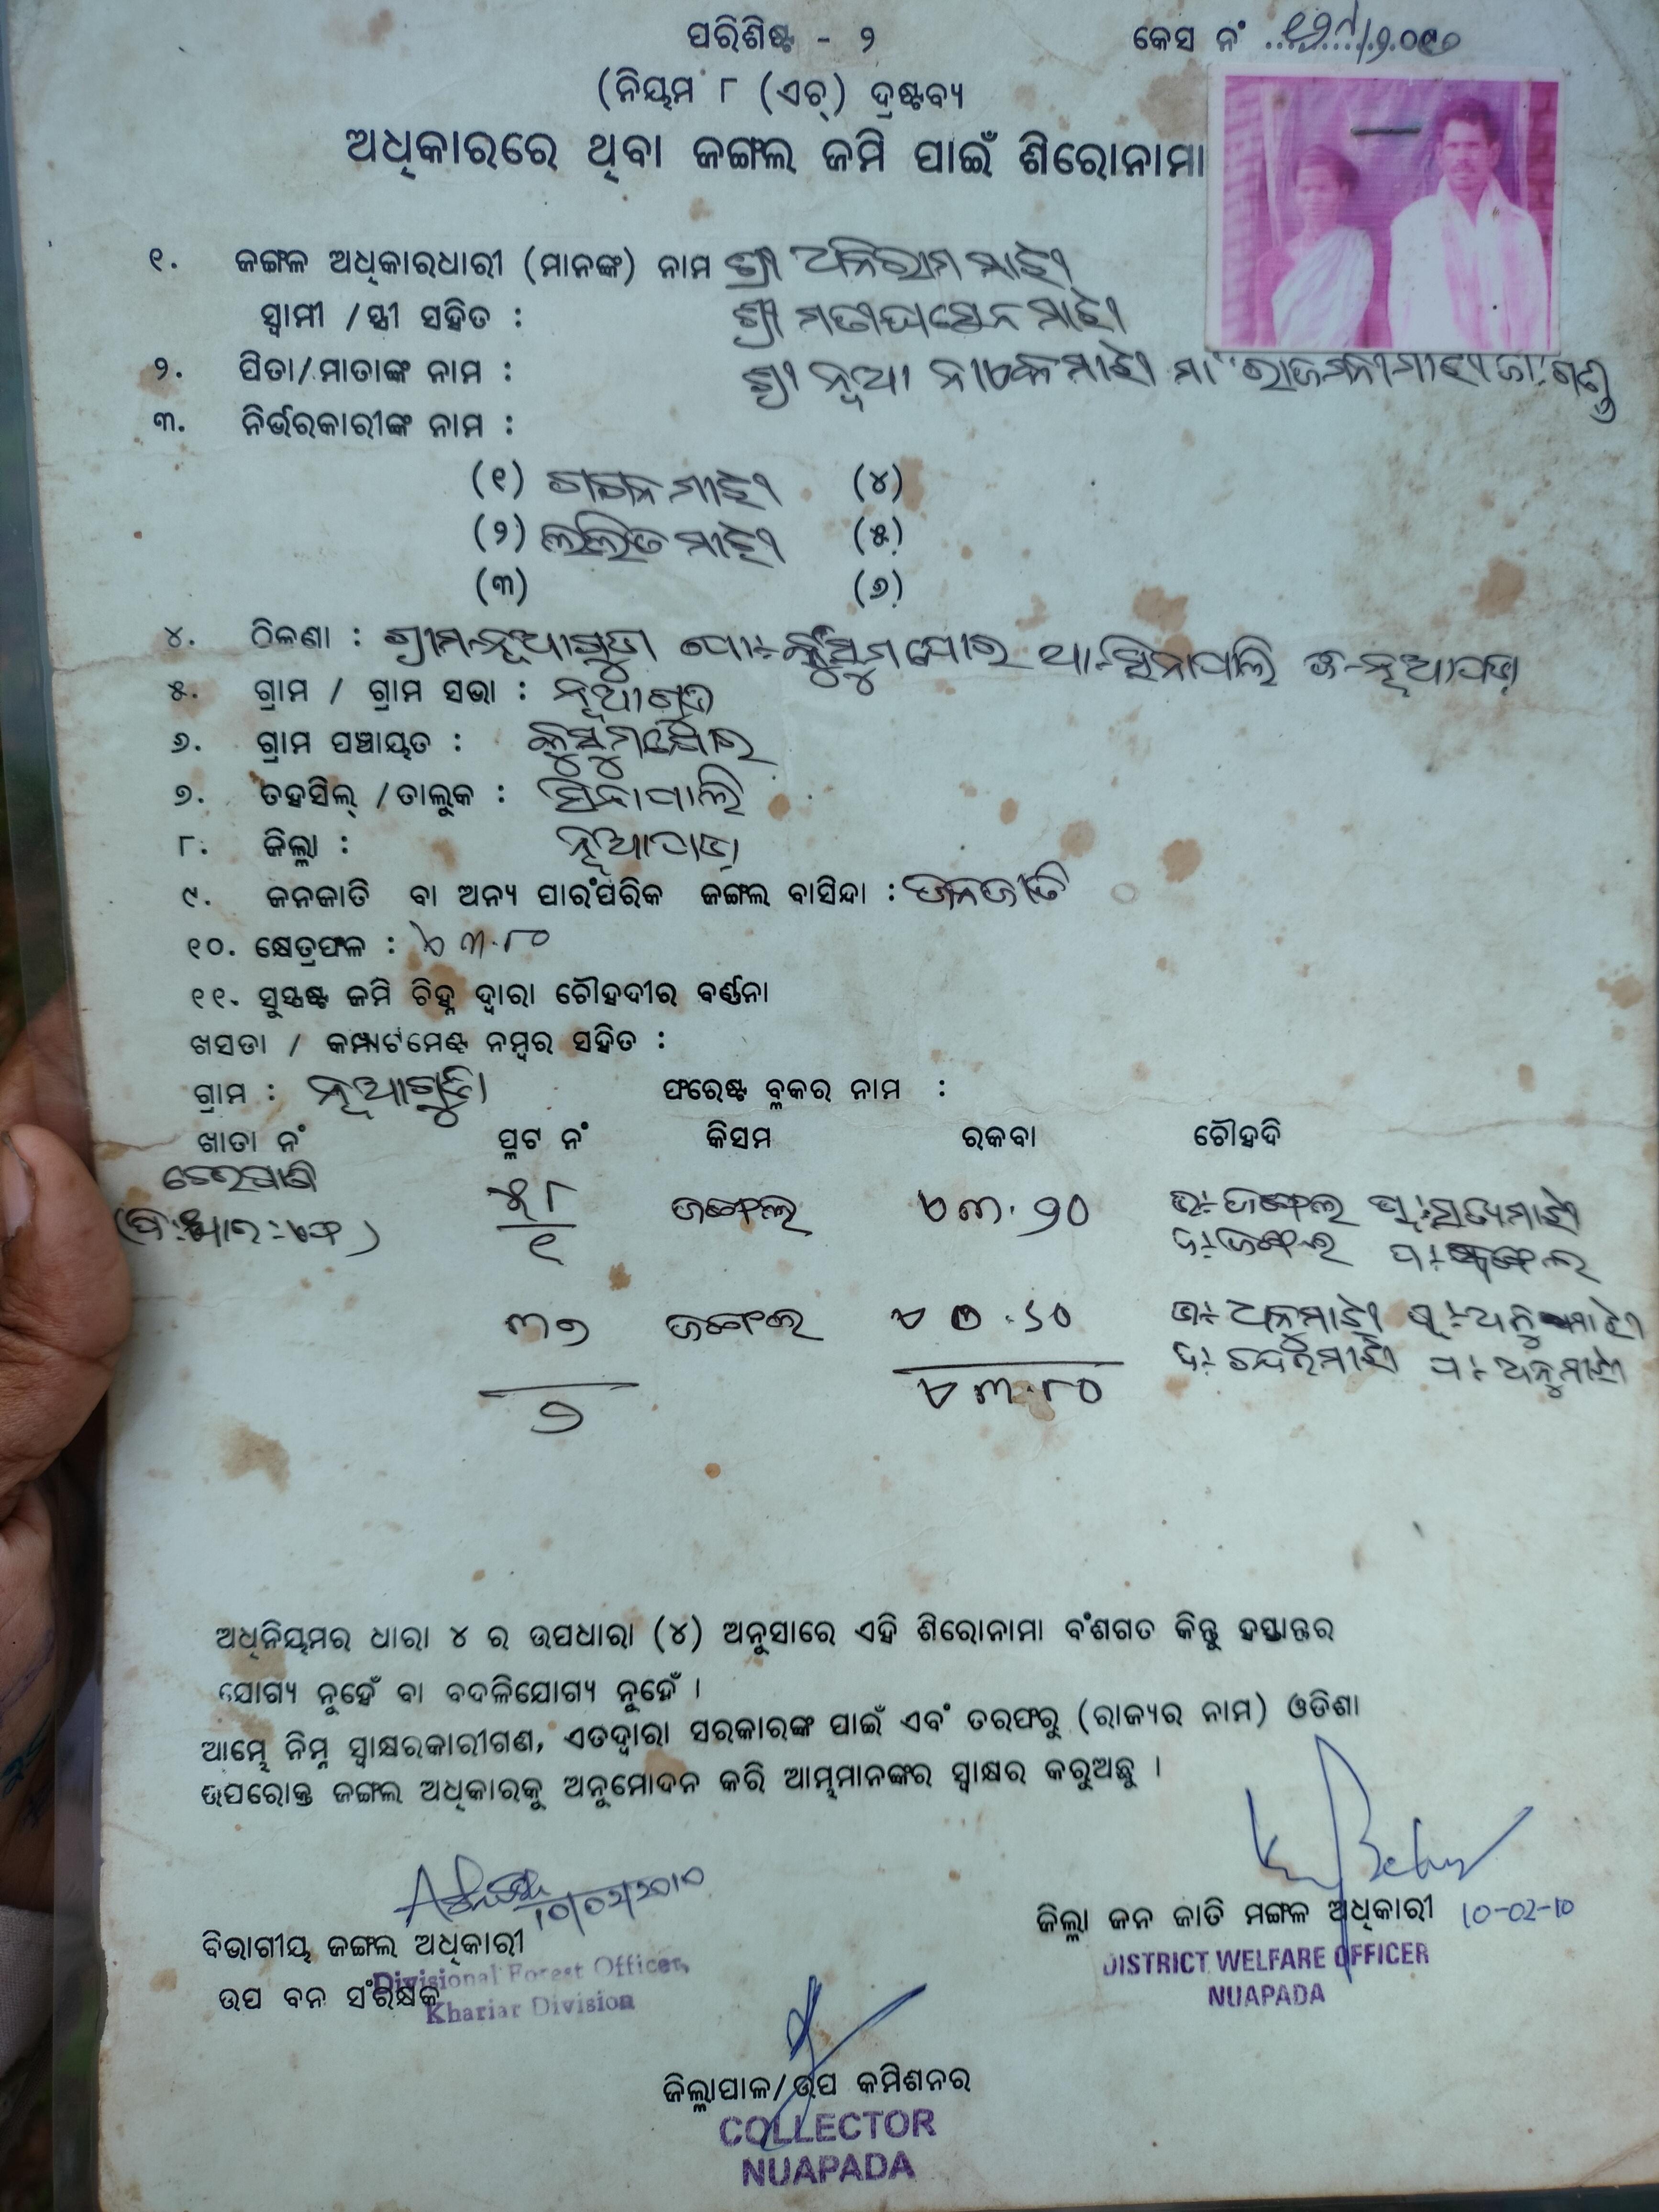 ପରିଶିଷ୍ଟ - ୨
କେସ ନଂ
(ନିୟମ ୮ (ଏଚ୍) ଦ୍ରଷ୍ଟବ୍ୟ
ଅଧିକାରରେ ଥିବା ଜଙ୍ଗଲ ଜମି ପାଇଁ ଶିରୋନାମା
୧. ଜଙ୍ଗଳ ଅଧିକାରଧାରୀ (ମାନଙ୍କ) ନାମ ଶ୍ରୀ ଅନିରାମ ମାଝୀ
ସ୍ୱାମୀ / ସ୍ତ୍ରୀ ସହିତ : ଶ୍ରୀ ମାଝୀ
୨. ପିତା/ମାତାଙ୍କ ନାମ : ଶ୍ରୀ ନୂଆ ମାଝୀ
୩. ନିର୍ଭରକାରୀଙ୍କ ନାମ :
(୧) ମାଝୀ (୪)
(୨) ଲଲିତ ମାଝୀ (୫)
(୩) (୬)
୪. ଠିକଣା : ଗ୍ରାମ-ନୂଆଗୁଡା ପୋ:-
୫. ଗ୍ରାମ / ଗ୍ରାମ ସଭା : ନୂଆଗୁଡା
୬. ଗ୍ରାମ ପଞ୍ଚାୟତ :
୭. ତହସିଲ୍ /ତାଲୁକ : ସିନାପାଲି
୮. ଜିଲ୍ଲା : ନୂଆପଡା
୯. ଜନଜାତି ବା ଅନ୍ୟ ପାରଂପରିକ ଜଙ୍ଗଲ ବାସିନ୍ଦା : ଜନଜାତି
୧୦. କ୍ଷେତ୍ରଫଳ : ଏ ୩.୮୦
୧୧. ସୁସ୍ପଷ୍ଟ ଜମି ଚିହ୍ନ ଦ୍ୱାରା ଚୌହଦୀର ବର୍ଣ୍ଣନା
ଖସଡା / କମ୍ପାର୍ଟମେଣ୍ଟ ନମ୍ବର ସହିତ :
ଗ୍ରାମ : ନୂଆଗୁଡା ଫରେଷ୍ଟ ବ୍ଲକର ନାମ :
ଖାତା ନଂ ପ୍ଲଟ ନଂ କିସମ ରକବା ଚୌହଦି
୫୮ ଜଙ୍ଗଲ ଏ ୩.୨୦ ଉ:- ଜଙ୍ଗଲ
୧ ଦ:- ଜଙ୍ଗଲ ପ:- ଜଙ୍ଗଲ
୩୭ ଜଙ୍ଗଲ ଏ ୦.୬୦ ଉ:- ଅନୁମାଝୀ ପୂ:- ଅନୁମାଝୀ
ପ:- ଅନୁମାଝୀ
୭ ଏ ୩.୮୦
ଅଧିନିୟମର ଧାରା ୪ ର ଉପଧାରା (୪) ଅନୁସାରେ ଏହି ଶିରୋନାମା ବଂଶଗତ କିନ୍ତୁ ହସ୍ତାନ୍ତର
ଯୋଗ୍ୟ ନୁହେଁ ବା ବଦଳିଯୋଗ୍ୟ ନୁହେଁ ।
ଆମ୍ଭେ ନିମ୍ନ ସ୍ୱାକ୍ଷରକାରୀଗଣ, ଏତଦ୍ୱାରା ସରକାରଙ୍କ ପାଇଁ ଏବଂ ତରଫରୁ (ରାଜ୍ୟର ନାମ) ଓଡିଶା
ଉପରୋକ୍ତ ଜଙ୍ଗଲ ଅଧିକାରକୁ ଅନୁମୋଦନ କରି ଆମ୍ଭମାନଙ୍କର ସ୍ୱାକ୍ଷର କରୁଅଛୁ ।
10/02/2010
ବିଭାଗୀୟ ଜଙ୍ଗଲ ଅଧିକାରୀ
ଉପ ବନ ସଂରକ୍ଷକ
Divisional Forest Officer,
Khariar Division
ଜିଲ୍ଲା ଜନ ଜାତି ମଙ୍ଗଳ ଅଧିକାରୀ 10-02-10
DISTRICT WELFARE OFFICER
NUAPADA
ଜିଲ୍ଲାପାଳ/ଉପ କମିଶନର
COLLECTOR
NUAPADA